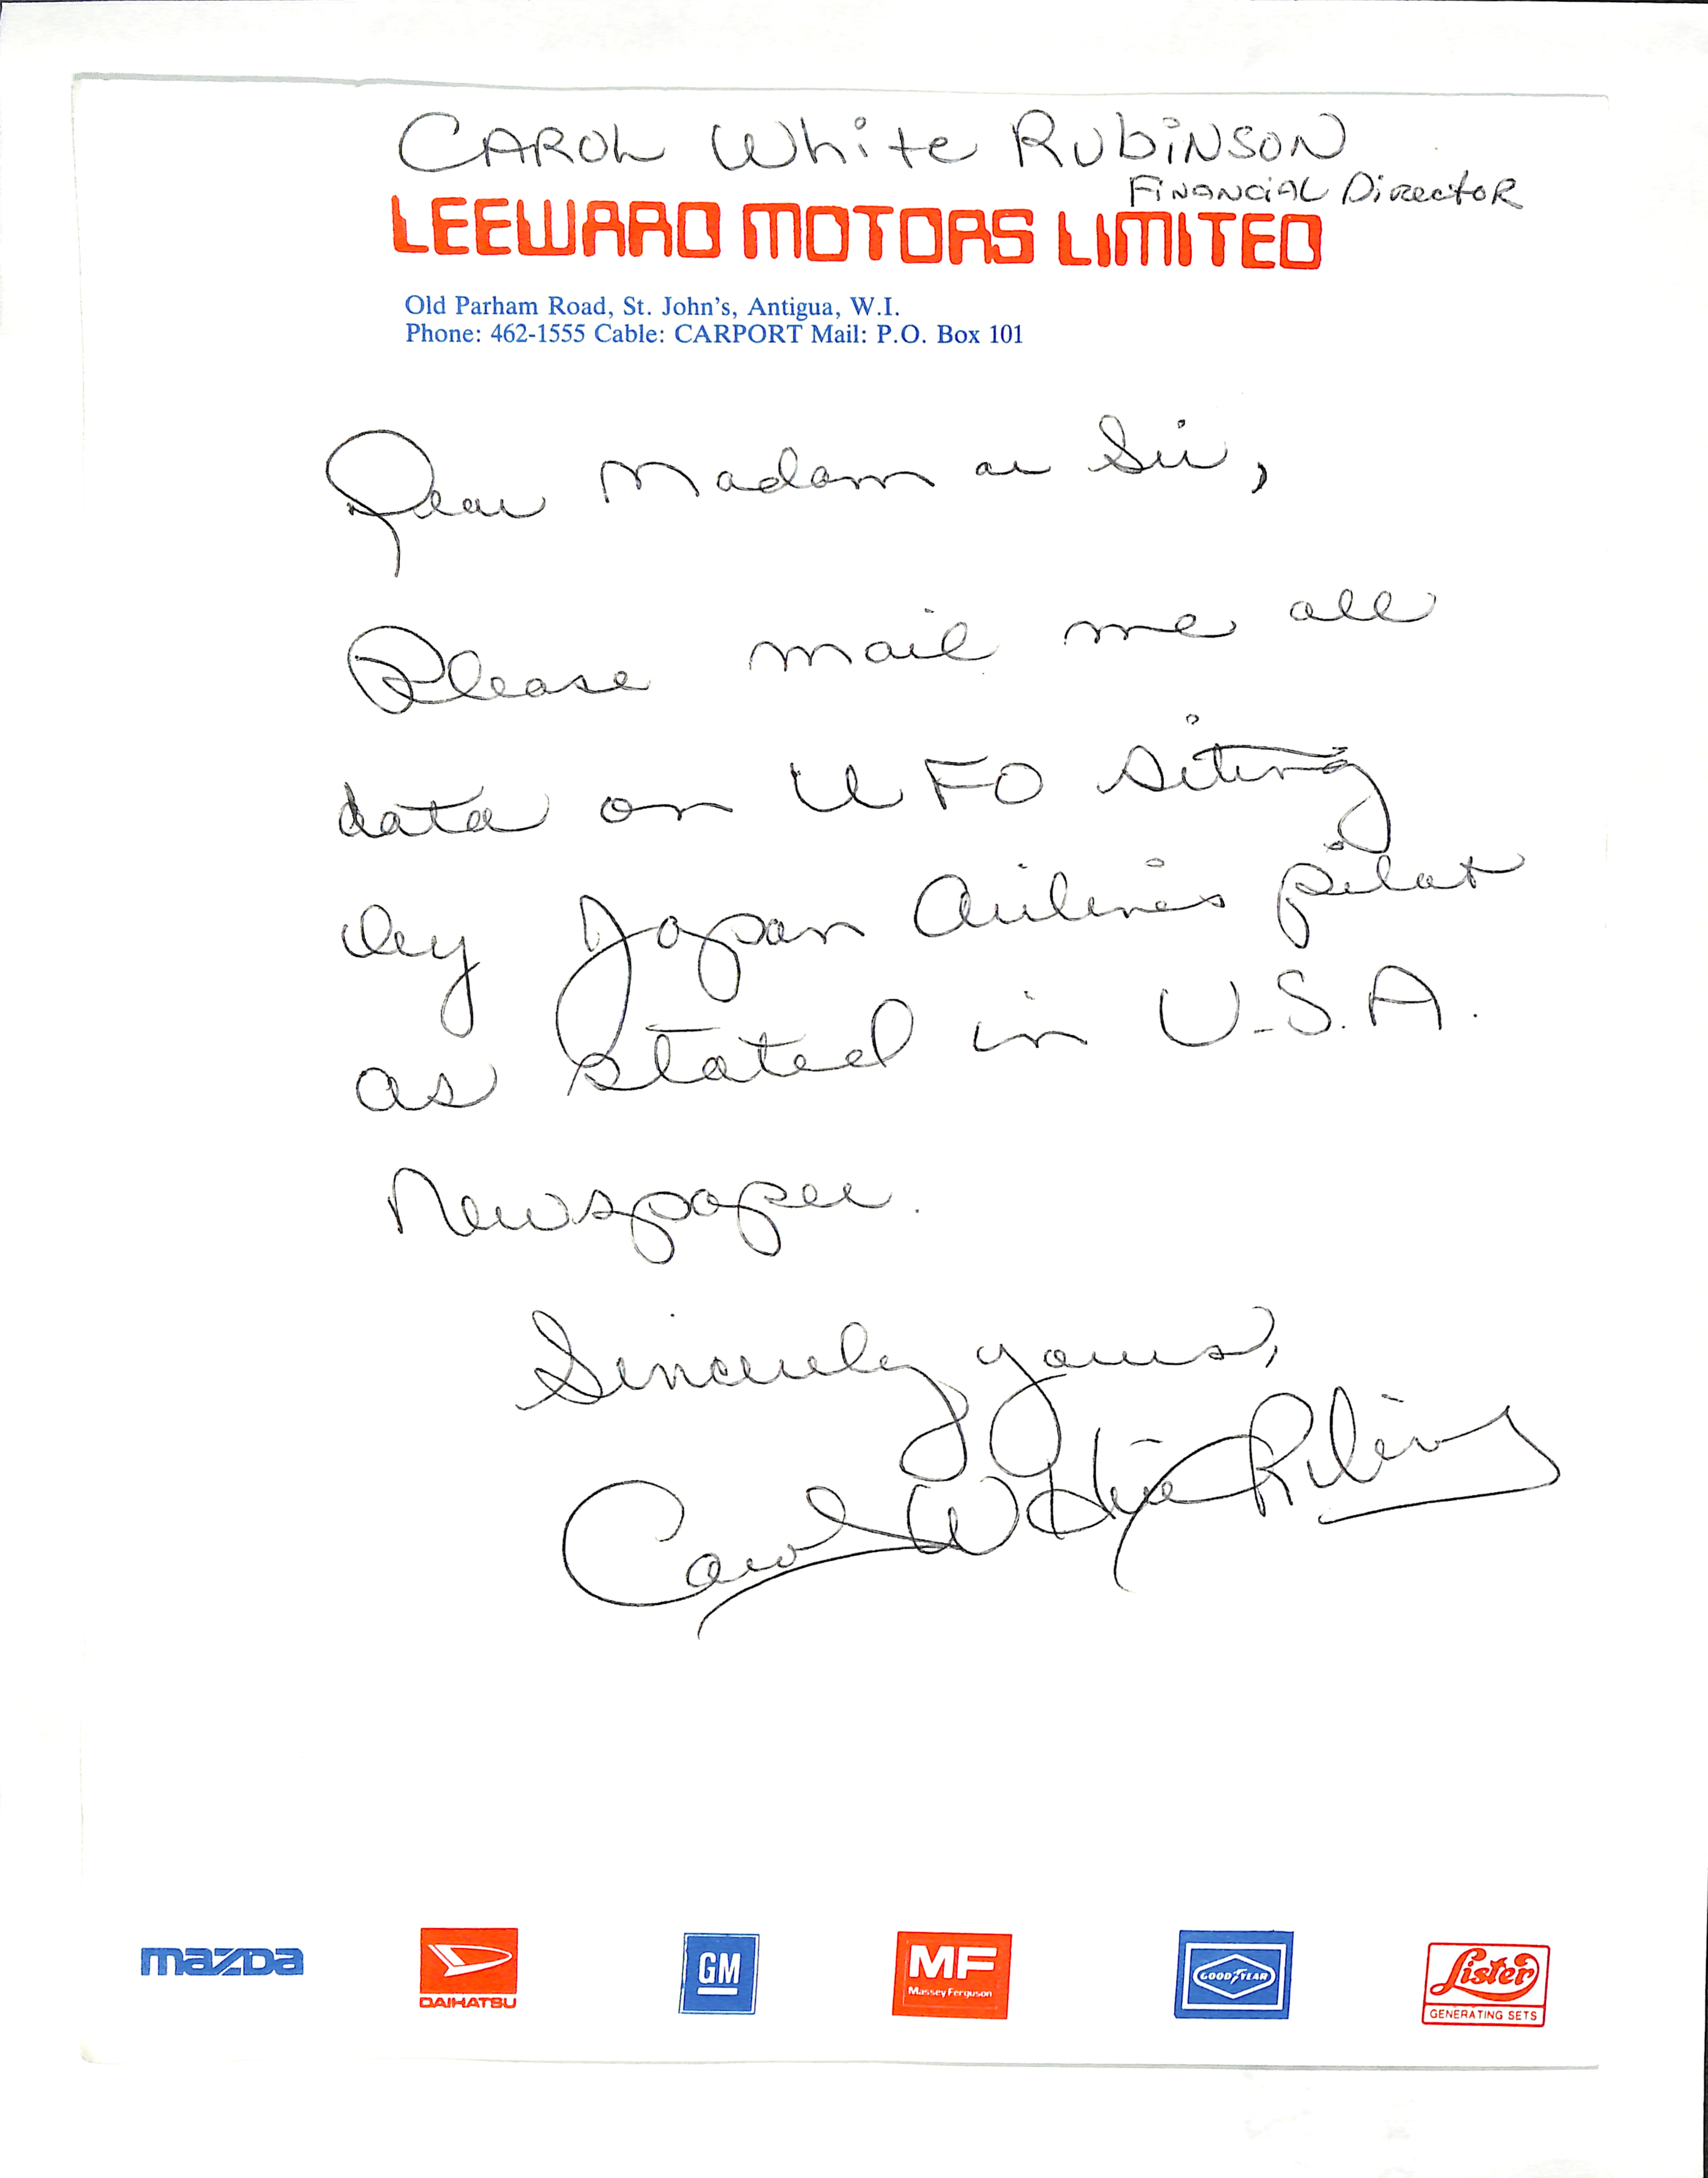 CAROL White RUBINSON
FINANCIAL DirectoR
LEEWARD MOTORS LIMITED
Old Parham Road, St. John's, Antigua, W.I.
Phone: 462-1555 Cable: CARPORT Mail: P.O. Box 101
Dear Madam or Sir,
Please mail me all
data on UFO siting
by Japan Airlines pilot
as stated in U.S.A.
Newspaper.
Sincerely yours,
Carol White Rubinson
mazda
DAIHATSU
GM
MF
Massey Ferguson
GOODYEAR
Lister
GENERATING SETS